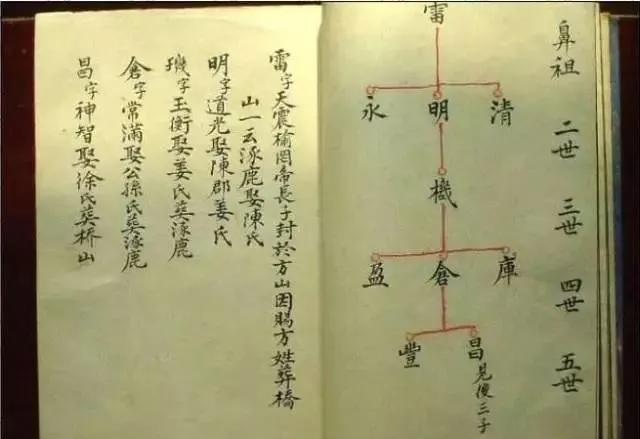 鼻祖
二世
三世
四世
五世
雷
清
明
永
機
庫
倉
盈
昌
見後三子
豐
雷字天震榆罔帝長子封於方山因賜方姓葬橋
山一云涿鹿娶陳氏
明字道光娶陳郡姜氏
璣字玉衡娶姜氏葬涿鹿
倉字常滿娶公孫氏葬涿鹿
昌字神智娶徐氏葬桥山